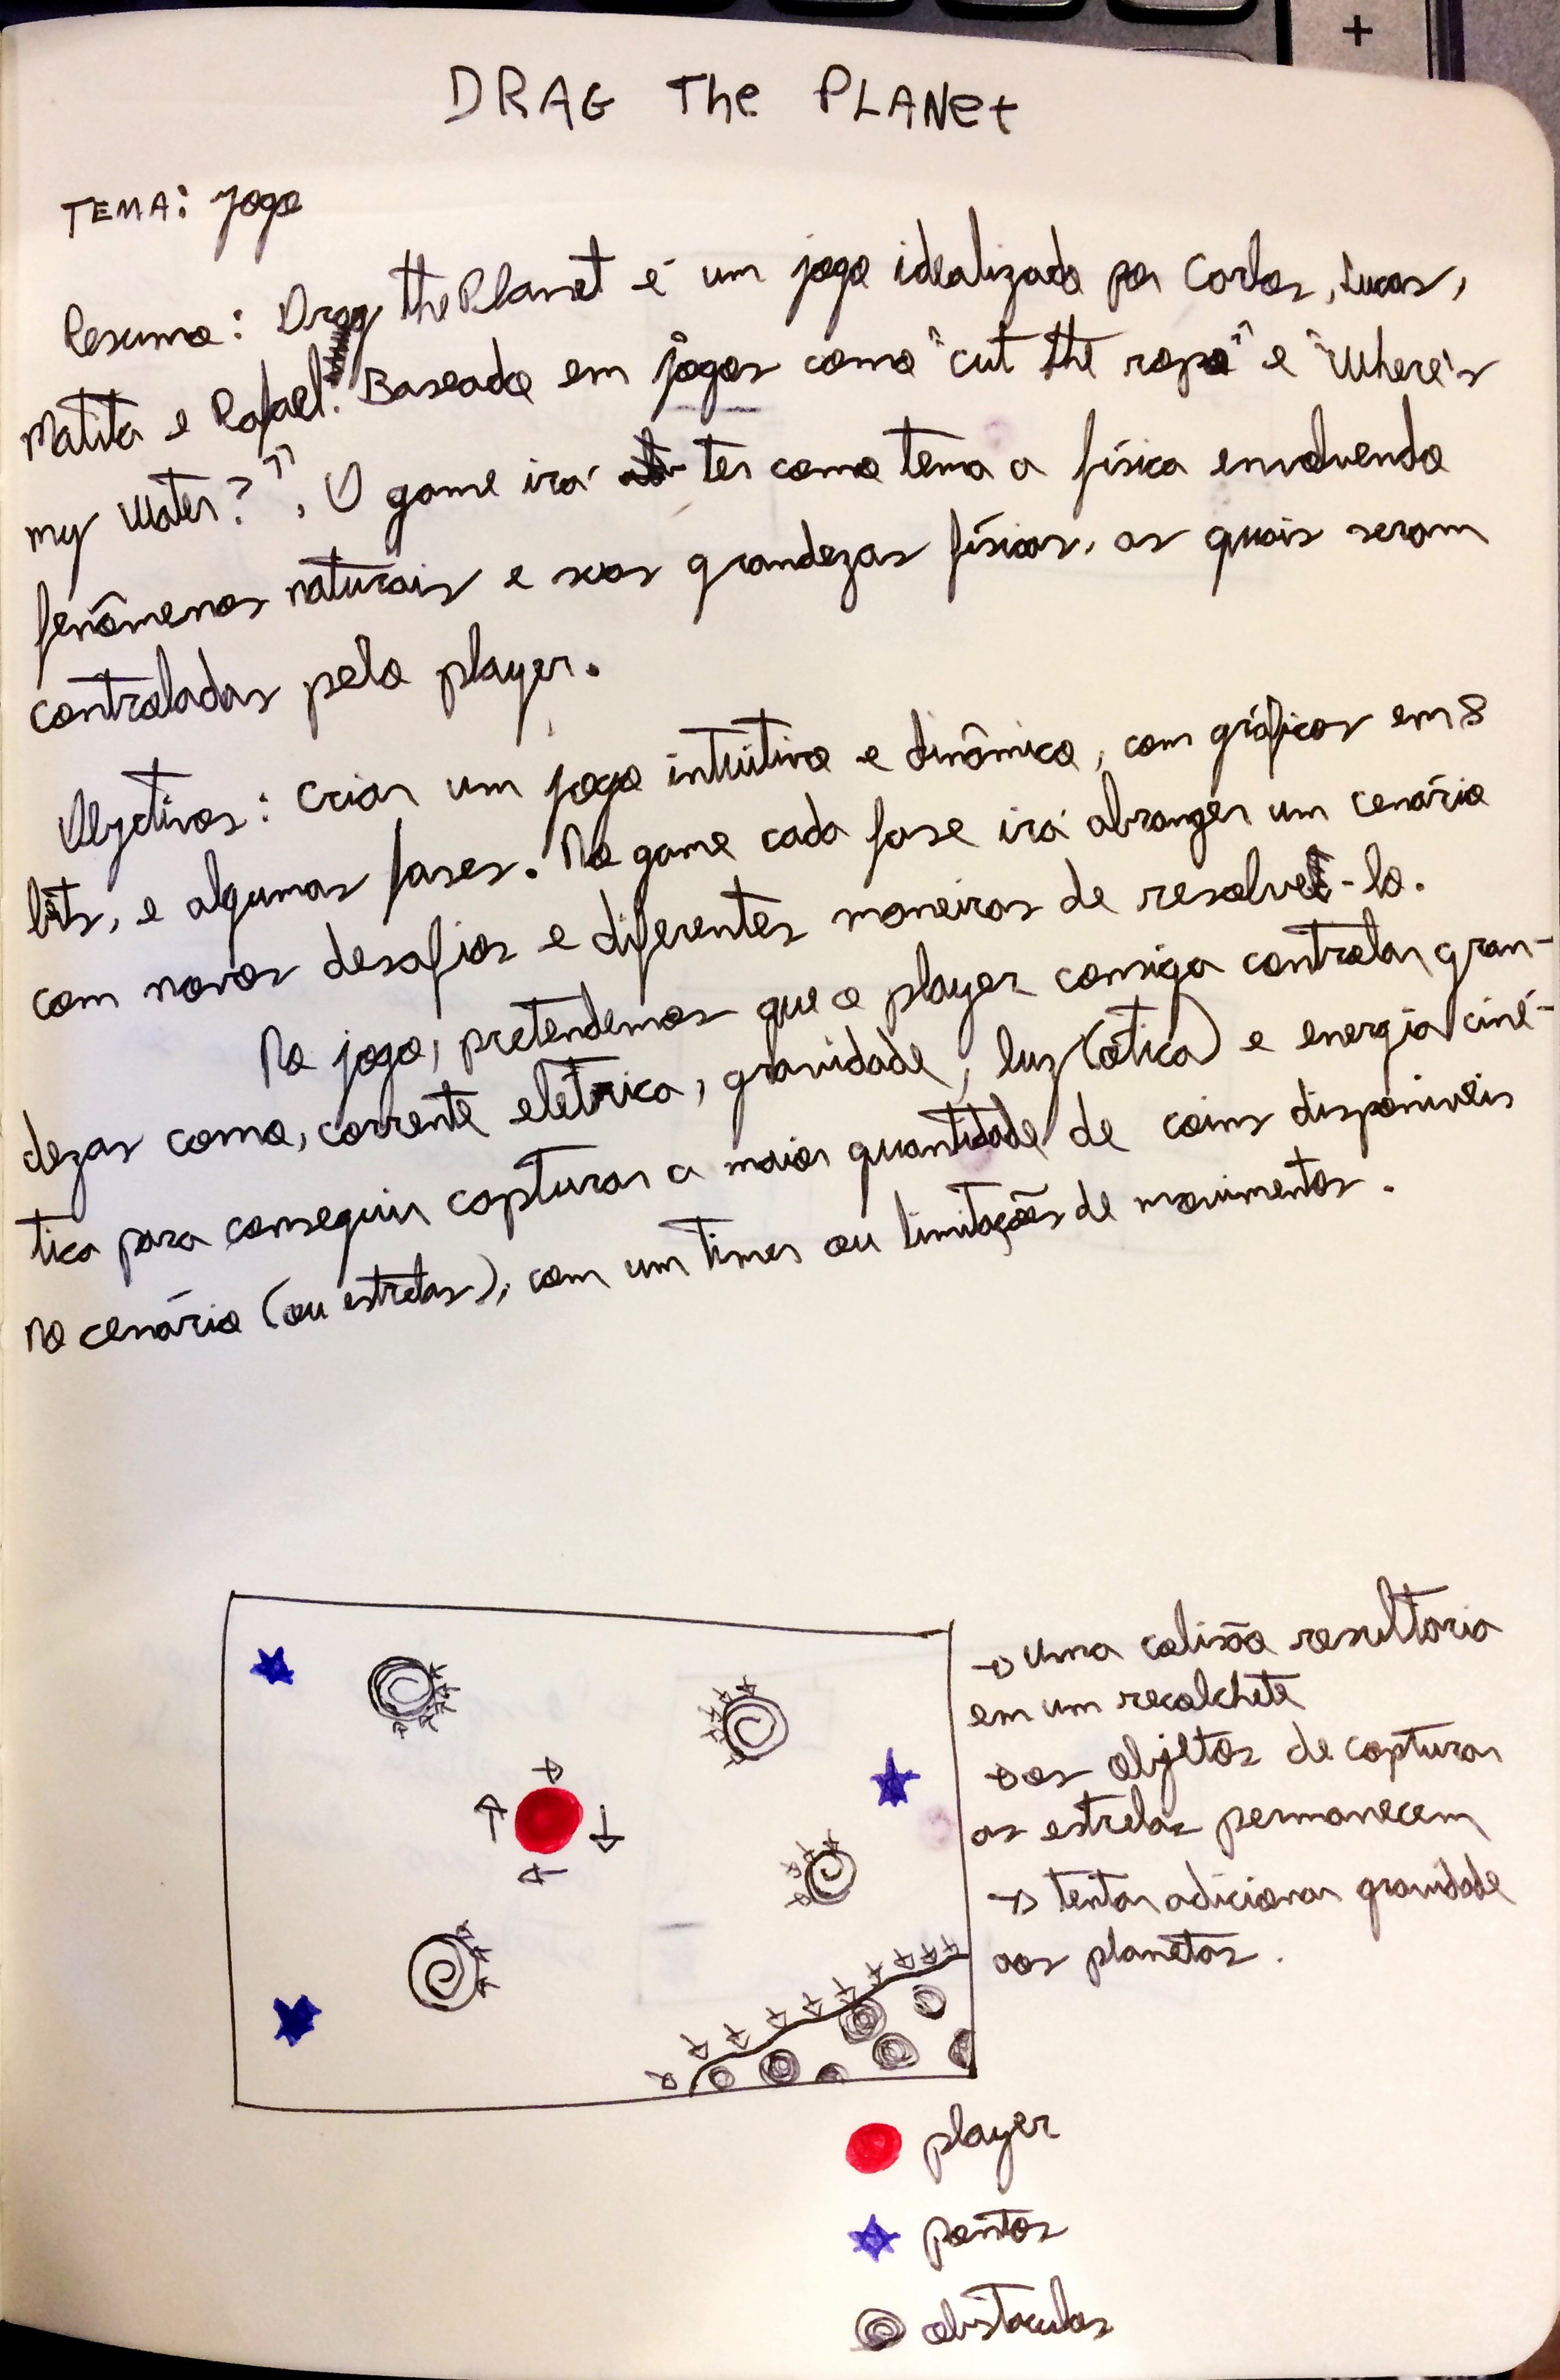 +
DRAG The PLANet
TEMA: jogo
Resumo: Drag the Planet é um jogo idealizado por Carlos, Lucas,
Matita e Rafael. Baseado em jogos como "cut the rope" e "Where's
my Water?". O game irá ter como tema a física envolvendo
fenômenos naturais e suas grandezas físicas, as quais seram
controladas pelo player.
Objetivos: Criar um jogo intuitivo e dinâmico, com gráficos em 8
bits, e algumas fases. No game cada fase irá abranger um cenário
com novos desafios e diferentes maneiras de resolvê-lo.
No jogo, pretendemos que o player consiga controlar gran-
dezas como, corrente elétrica, gravidade, luz (ótica) e energia ciné-
tica para conseguir capturar a maior quantidade de coins disponíveis
no cenário (ou estrelas), com um timer ou limitações de movimentos.
→ uma colisão resultaria
em um recolchete
→ os objetos de capturar
as estrelas permanecem
→ tentar adicionar gravidade
aos planetas.
player
pontos
obstaculos